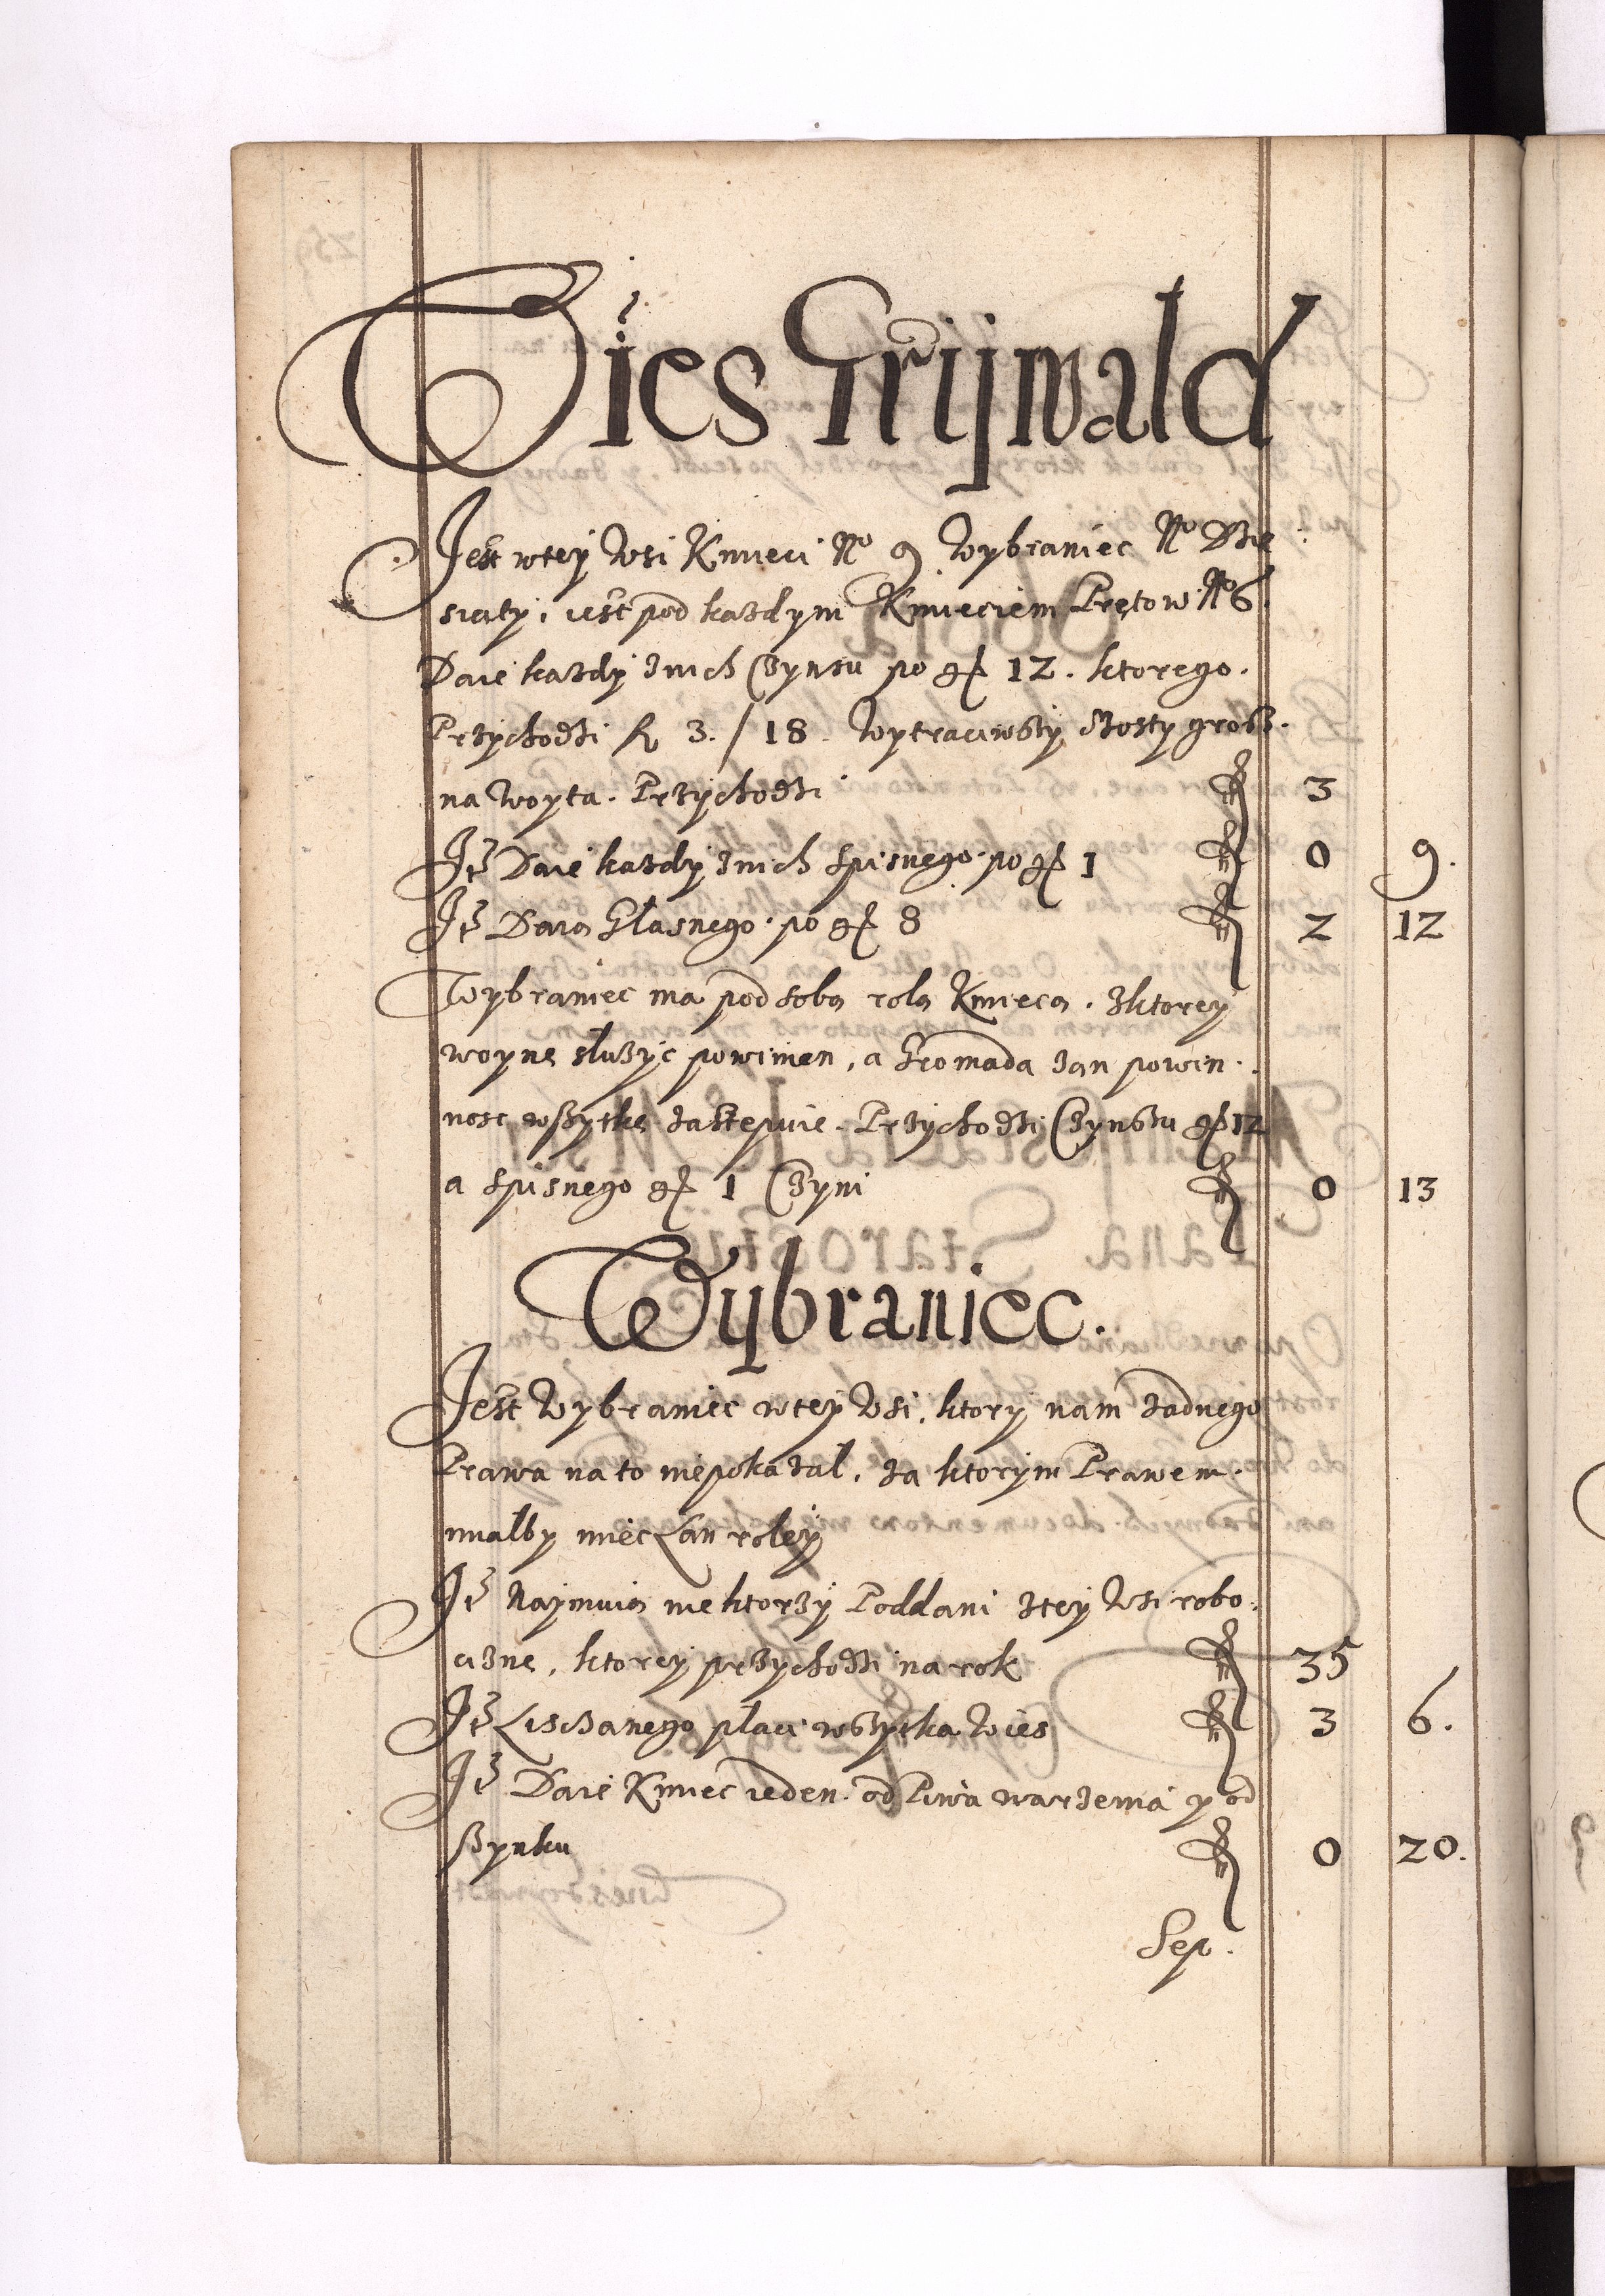 Wies Grijwald
Jest wtey Wsi Kmieci No 9 Wybraniec No Dzie
siąty, iest pod kazdym Kmieciem Prętow No 6.
Daie kazdy znich Czynszu po gr 12. ktorego.
Przychodzi fl 3. / 18. Wytraciwszy szosty grosz.
na Woyta. Przychodzi fl 3
It Daie kazdy znich spisnego po gr 1 fl 0 9.
It Daią Głasnego po gr 8 fl 2 12
Wybraniec ma pod sobą rolą Kmiecą. zktorey
woynę słuzyc powinien, a Gromada zan powin.
nosc wszytkę zastępuie. Przychodzi Czynszu gr 12
a spisnego gr 1 Czyni fl 0 13
Wybraniec.
Jest Wybraniec wtey Wsi, ktory nam zadnego
Prawa na to niepokazał, za ktorym Prawem.
miałby miec Łan roley
It Naymuią niektorzy Poddani ztey Wsi robo.
ciznę, ktorey przychodzi na rok fl 35
It Lisczanego płaci wszytka Wies fl 3 6.
It Daie Kmiec ieden od Piwa warzenia y od
szynku fl 0 20.
Sep.